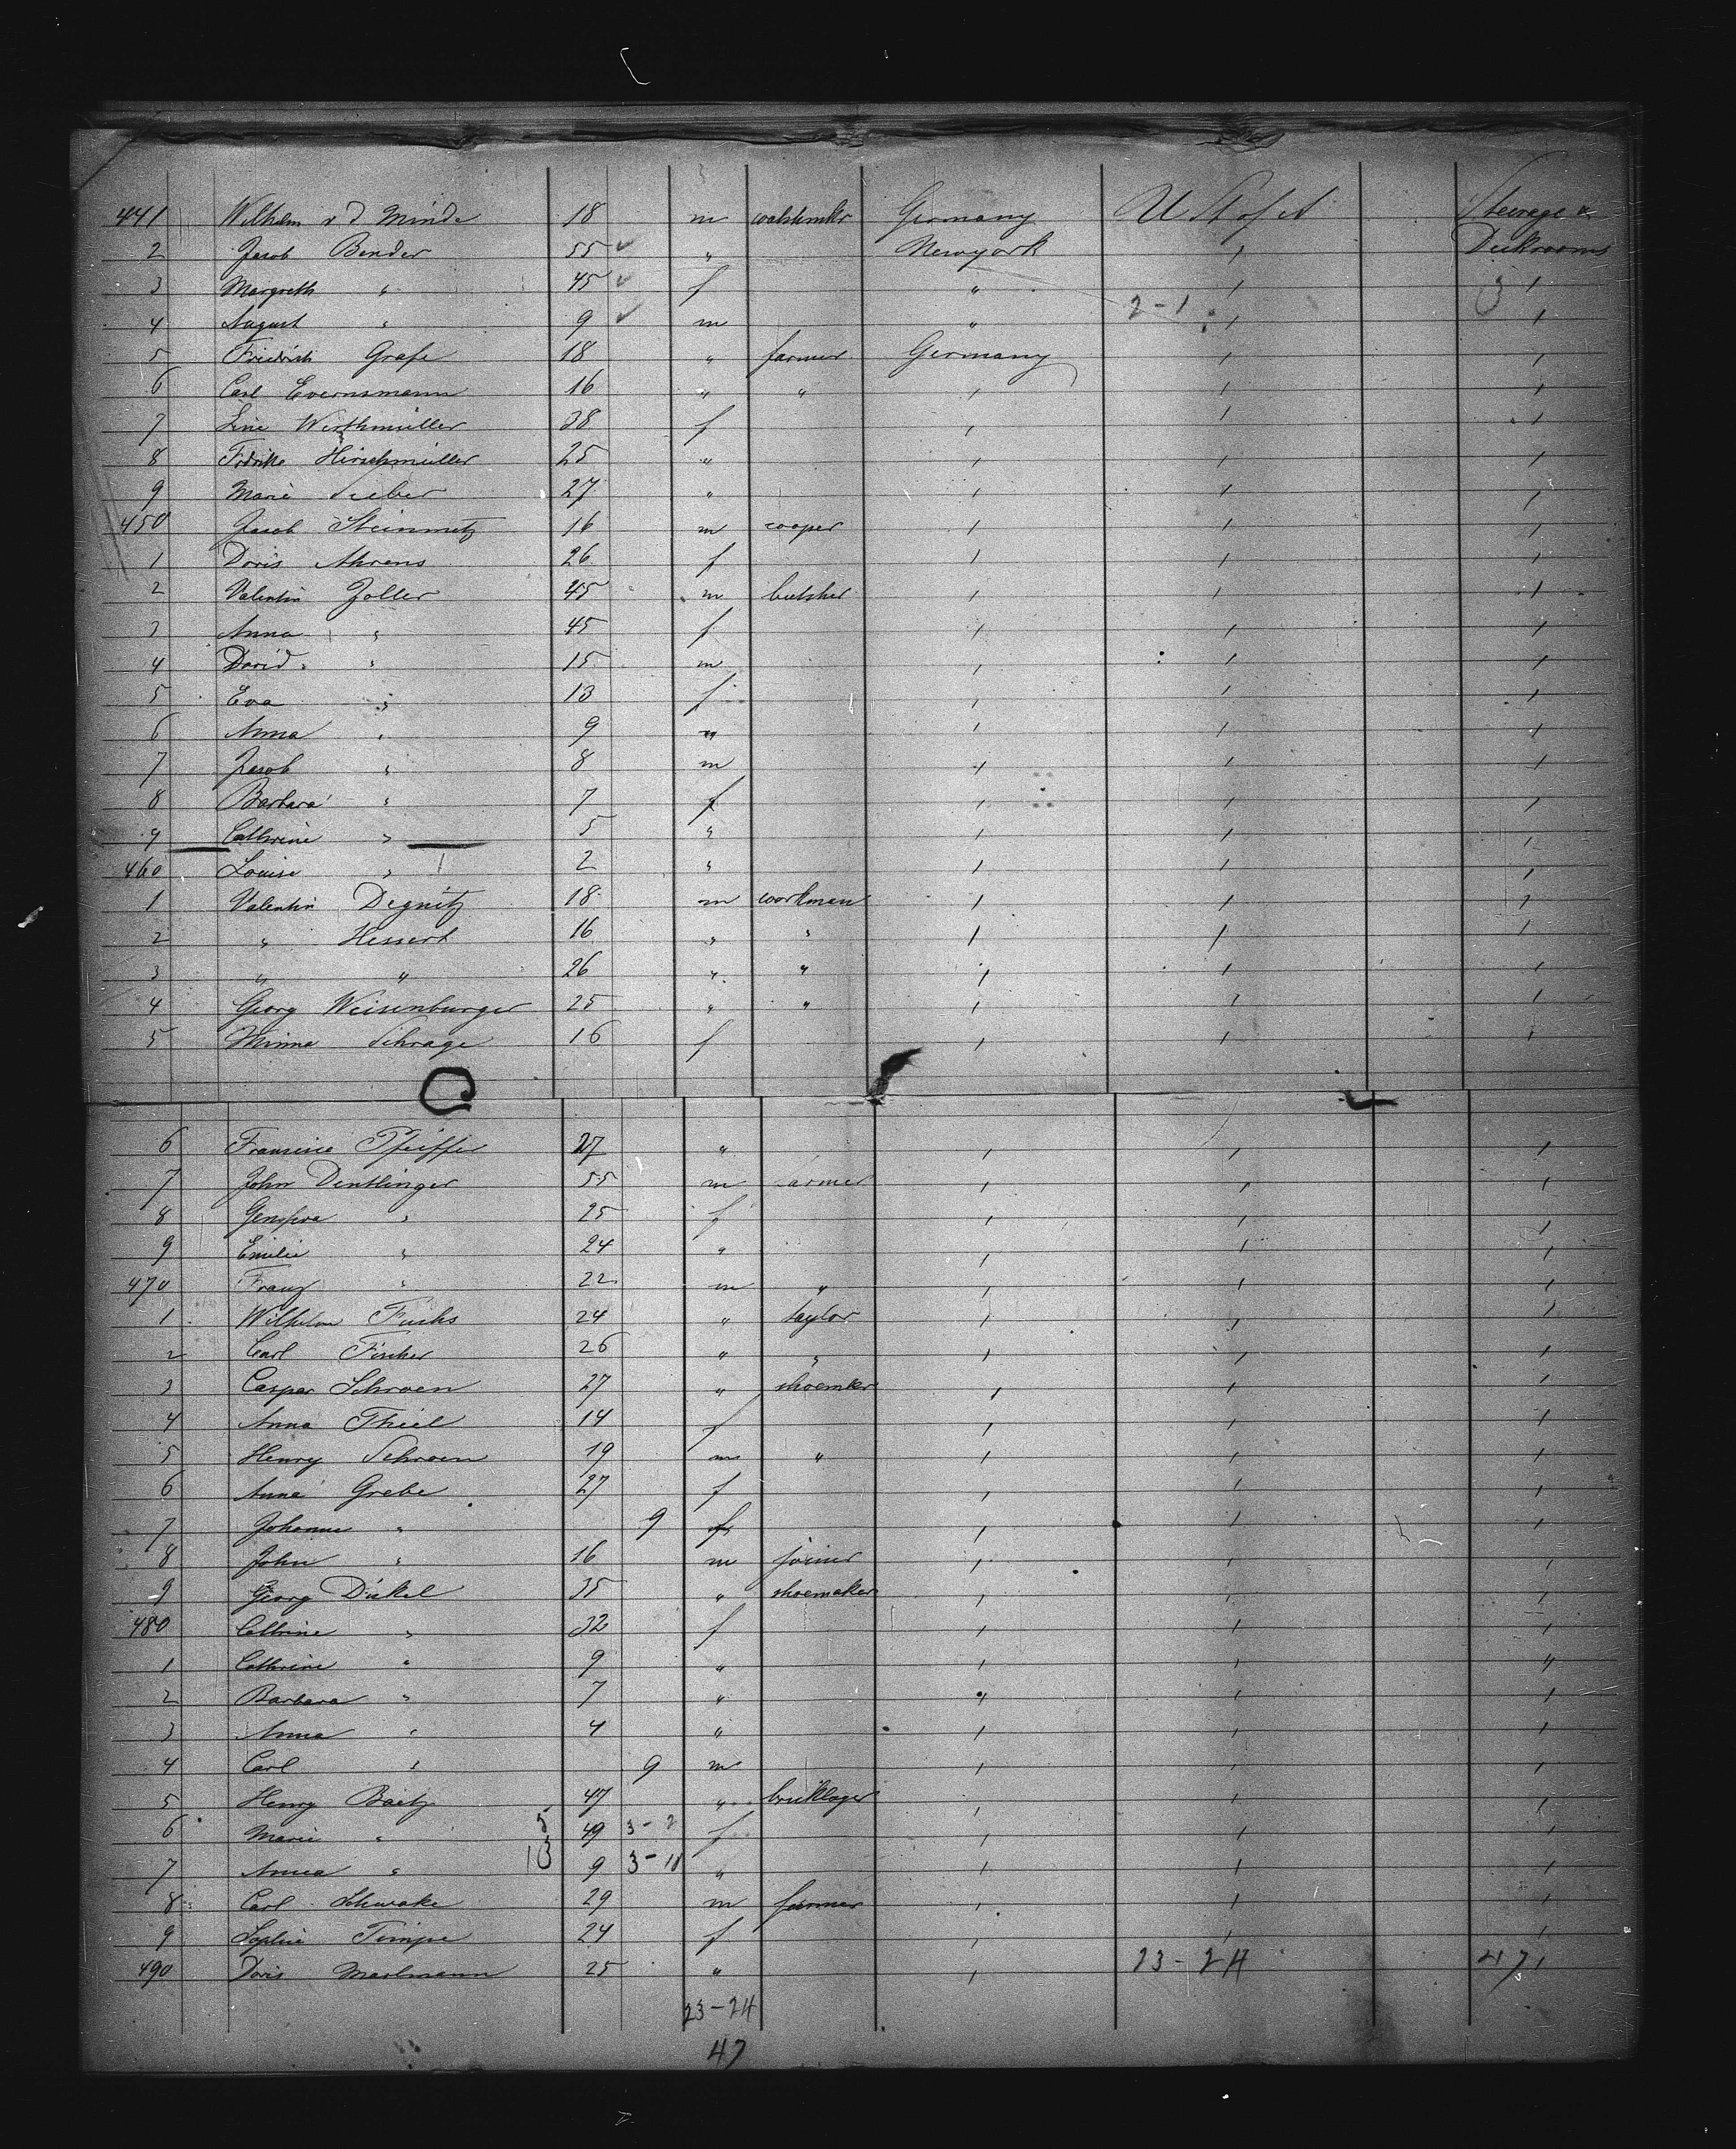 441 Wilhelm v d Minde 18 m Germany U St of A Steerage &
2 Jacob Bender 55 ✓ " Newyork / Deckrooms
3 Margreth " 45 ✓ f " / 3 /
4 August " 9 ✓ m " 2-1 / /
5 Friedrich Grafe 18 " farmer Germany / /
6 Carl Evernsmann 16 " " / / /
7 Line Wirthmüller 38 f / / /
8 Fridrike Hirschmüller 25 " / / /
9 Marie Sieber 27 " / / /
450 Jacob Steinmetz 16 m cooper / / /
1 Doris Ahrens 26 f / / /
2 Valentin Zoller 45 m butsher / / /
3 Anna " 45 f / / /
4 David " 15 m / / /
5 Eva " 13 f / / /
6 Anna " 9 " / / /
7 Jacob " 8 m / / /
8 Barbara " 7 f / / /
9 Cathrine " 5 " / / /
460 Louise " 2 " / / /
1 Valentin Degnitz 18 m workman / / /
2 " Hessert 16 " " / / /
3 " " 26 " " / / /
4 Georg Weisenburger 25 " " / / /
5 Minna Schrage 16 f / / /
6 Pfeiffer 27 " / / /
7 John Dentlinger 55 m farmer / / /
8 " 25 f / / /
9 Emilie " 24 " / / /
470 Franz " 22 m " / / /
1 Wilhelm Fuchs 24 " taylor / / /
2 Carl Fischer 26 " " / / /
3 Caspar Schroen 27 " shoemker / / /
4 Anna Thiel 14 f / / /
5 Henry Schroen 19 m " / / /
6 Anna Grebe 27 f / / /
7 Johanne " 9 f / / /
8 John " 16 m joiner / / /
9 Georg Dickel 35 " shoemaker / / /
480 Cathrine " 32 f / / /
1 Cathrine " 9 " / / "
2 Barbara " 7 " " / /
3 Anna " 4 " / / /
4 Carl " 9 m / / /
5 Henry Baetz 47 " bricklayer / / /
6 Marie " 5 49 3-2 f / / /
7 Anna " 13 9 3-10 " / / /
8 Carl Schwake 29 m farmer / / /
9 Sophie Timpe 24 f / / /
490 Doris Marlmann 25 " / 23-24 47 /
23-24
47